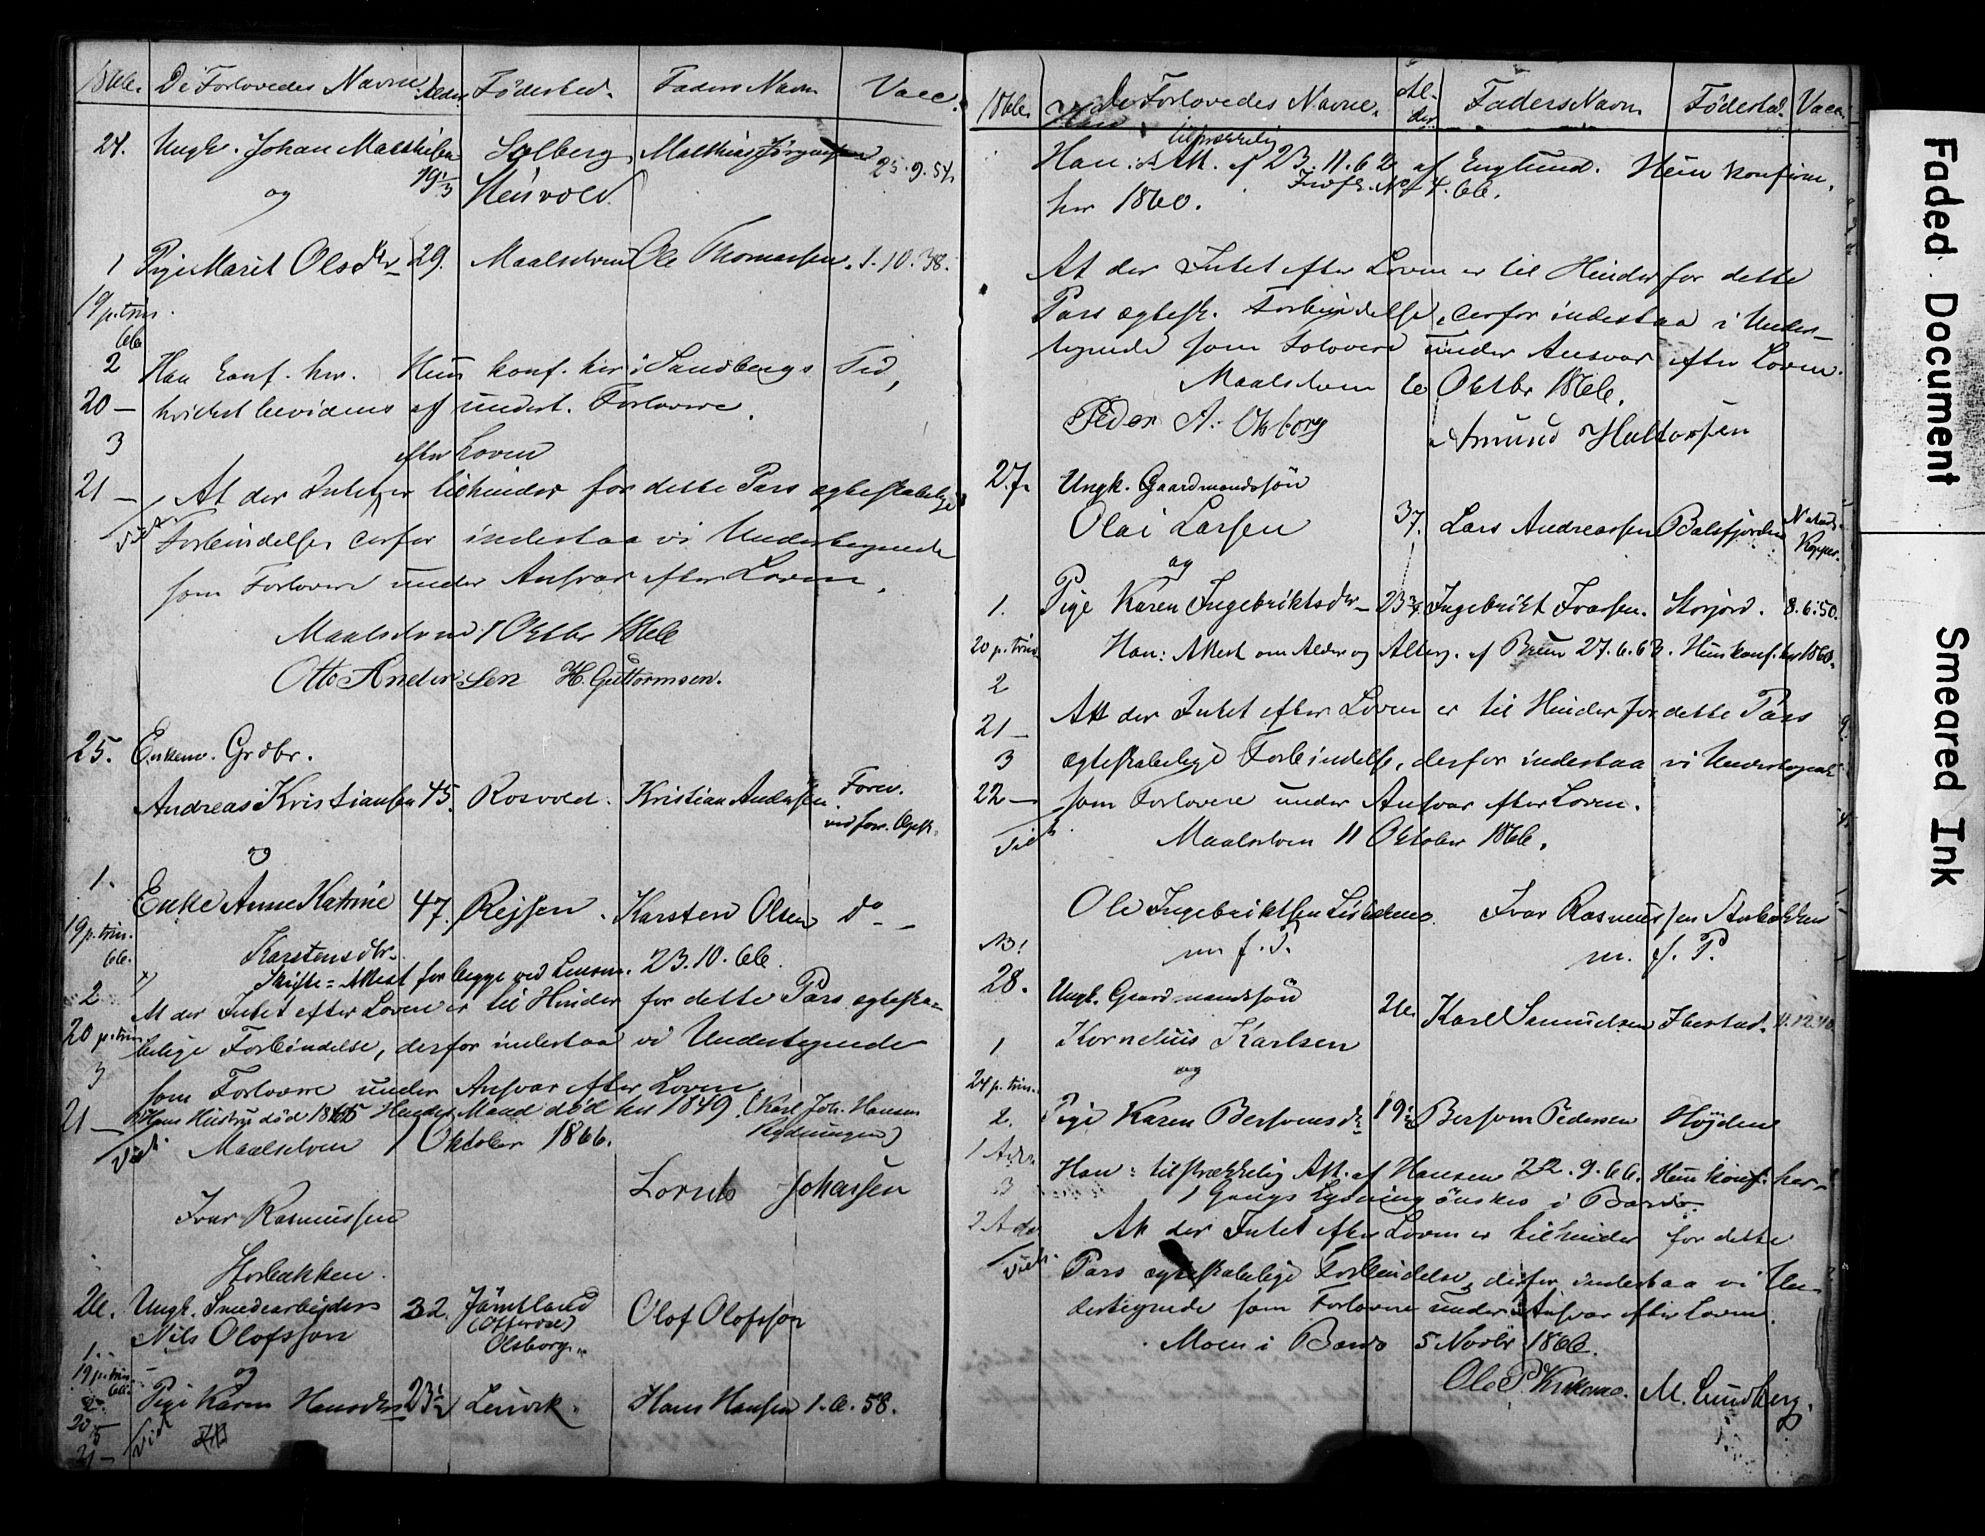 1866. De Forlovedes Navne Alder Födested. Faders Navn Vacc.
24. Ungk. Johan Matthisen Solberg Matthias Jörgensen 25.9.54.
og
1 Pige Maret Olsdtr 29. Maalselven Ole Thomassen. 1.10.38.
19 p. trin.
66
2 Han konf. her. Hun konf. her i Sandbergs Tid,
20 — hvilket bevidnes af undert. Forlovere.
3 efter Loven
21 — At der Intet er til Hinder for dette Pars ægteskabelige
Forbindelse, derfor indestaa vi Undertegnede
som Forlovere under Ansvar efter Loven.
Maalselven 1 Oktbr 1866
Otto Andersen H. Guttormsen.
25. Enkem. Grdbr.
Andreas Kristiansen 45. Rosvold. Kristian Andersen Forev.
ved forr. Ægtsk.
og
1. Enke Anne Katrine 47. Rejsen. Karsten Olsen do —
19 p. trin. Karstensdtr.
66. Skifte-Attest for begge ved Lensm. 23.10.66.
2 At der Intet efter Loven er til Hinder for dette Pars ægteska-
20 p. trin belige Forbindelse, derfor indestaa vi Undertegnede
3 som Forlovere under Ansvar efter Loven.
21 — Hans Hustru död 1865 Hendes Mand död her 1849. (Karl Joh. Hansen
Vidi Maalselven 1 Oktober 1866.
Lornts Johansen
Ivar Rasmussen
Storbakken.
26. Ungk. Smedearbejder 32. Jämtland Olof Olofsson
Nils Olofsson Olsborg
1. og
19 p. trin
66.
2. Pige Karen Hansdtr 23½ Lenvik. Hans Hansen 1.6.58.
20 —
3
21 — Vidi
1866. De Forlovedes Navne. Al-
der Faders Navn Födested. Vacc.
tilstrækkelig
Han: Att. af 23.11.62 af Englund. Hun konfirm.
her 1860. No 4.66.
At der Intet efter Loven er til Hinder for dette
Pars ægtesk. Forbindelse, derfor indestaa i Under-
tegnede som Forlovere under Ansvar efter Loven.
Maalselven 6 Oktbr 1866.
Peder A. Olsborg Amund Huttorsen
27. Ungk. Gaardmandssön
Olai Larsen 37. Lars Andreassen Balsfjorden Naturl.
Kopper.
og
1. Pige Karen Ingebriktsdtr 23¾ Ingebrikt Ivarsen. Storjord. 8.6.50.
20 p. trin. Han: Attest om Alder og Alterg. af Brun 27.6.63. Hun konf. her 1860.
2
21 — Att der Intet efter Loven er til Hinder for dette Pars
3 ægteskabelige Forbindelse, derfor indestaa vi Undertegnede
22 — som Forlovere under Ansvar efter Loven.
Vidi Maalselven 11 Oktober 1866.
Ole Ingebriktsen Ivar Rasmussen Storbakken
NB! m. f. P. m. f. P.
28. Ungk. Gaardmandssön
Kornelius Karlsen 26. Karl Samuelsen Ibestad. 11.12.40
1 og
24 p. trin.
2. Pige Karen Bersvensdtr 19½ Bersven Pedersen Höjden
1 Adv. Han: tilstrækkelig Att. af Hansen 22.9.66. Hun konf. her.
3 1 Gangs Lysning önskes i Bardo.
2 Adv. At der Intet efter Loven er til Hinder for dette
Vidi Pars ægteskabelige Forbindelse, derfor indestaa vi Un-
dertegnede som Forlovere under Ansvar efter Loven.
Moen i Bardo 5 Novbr 1866.
Ole P. M. Sundberg.
Faded Document
Smeared Ink